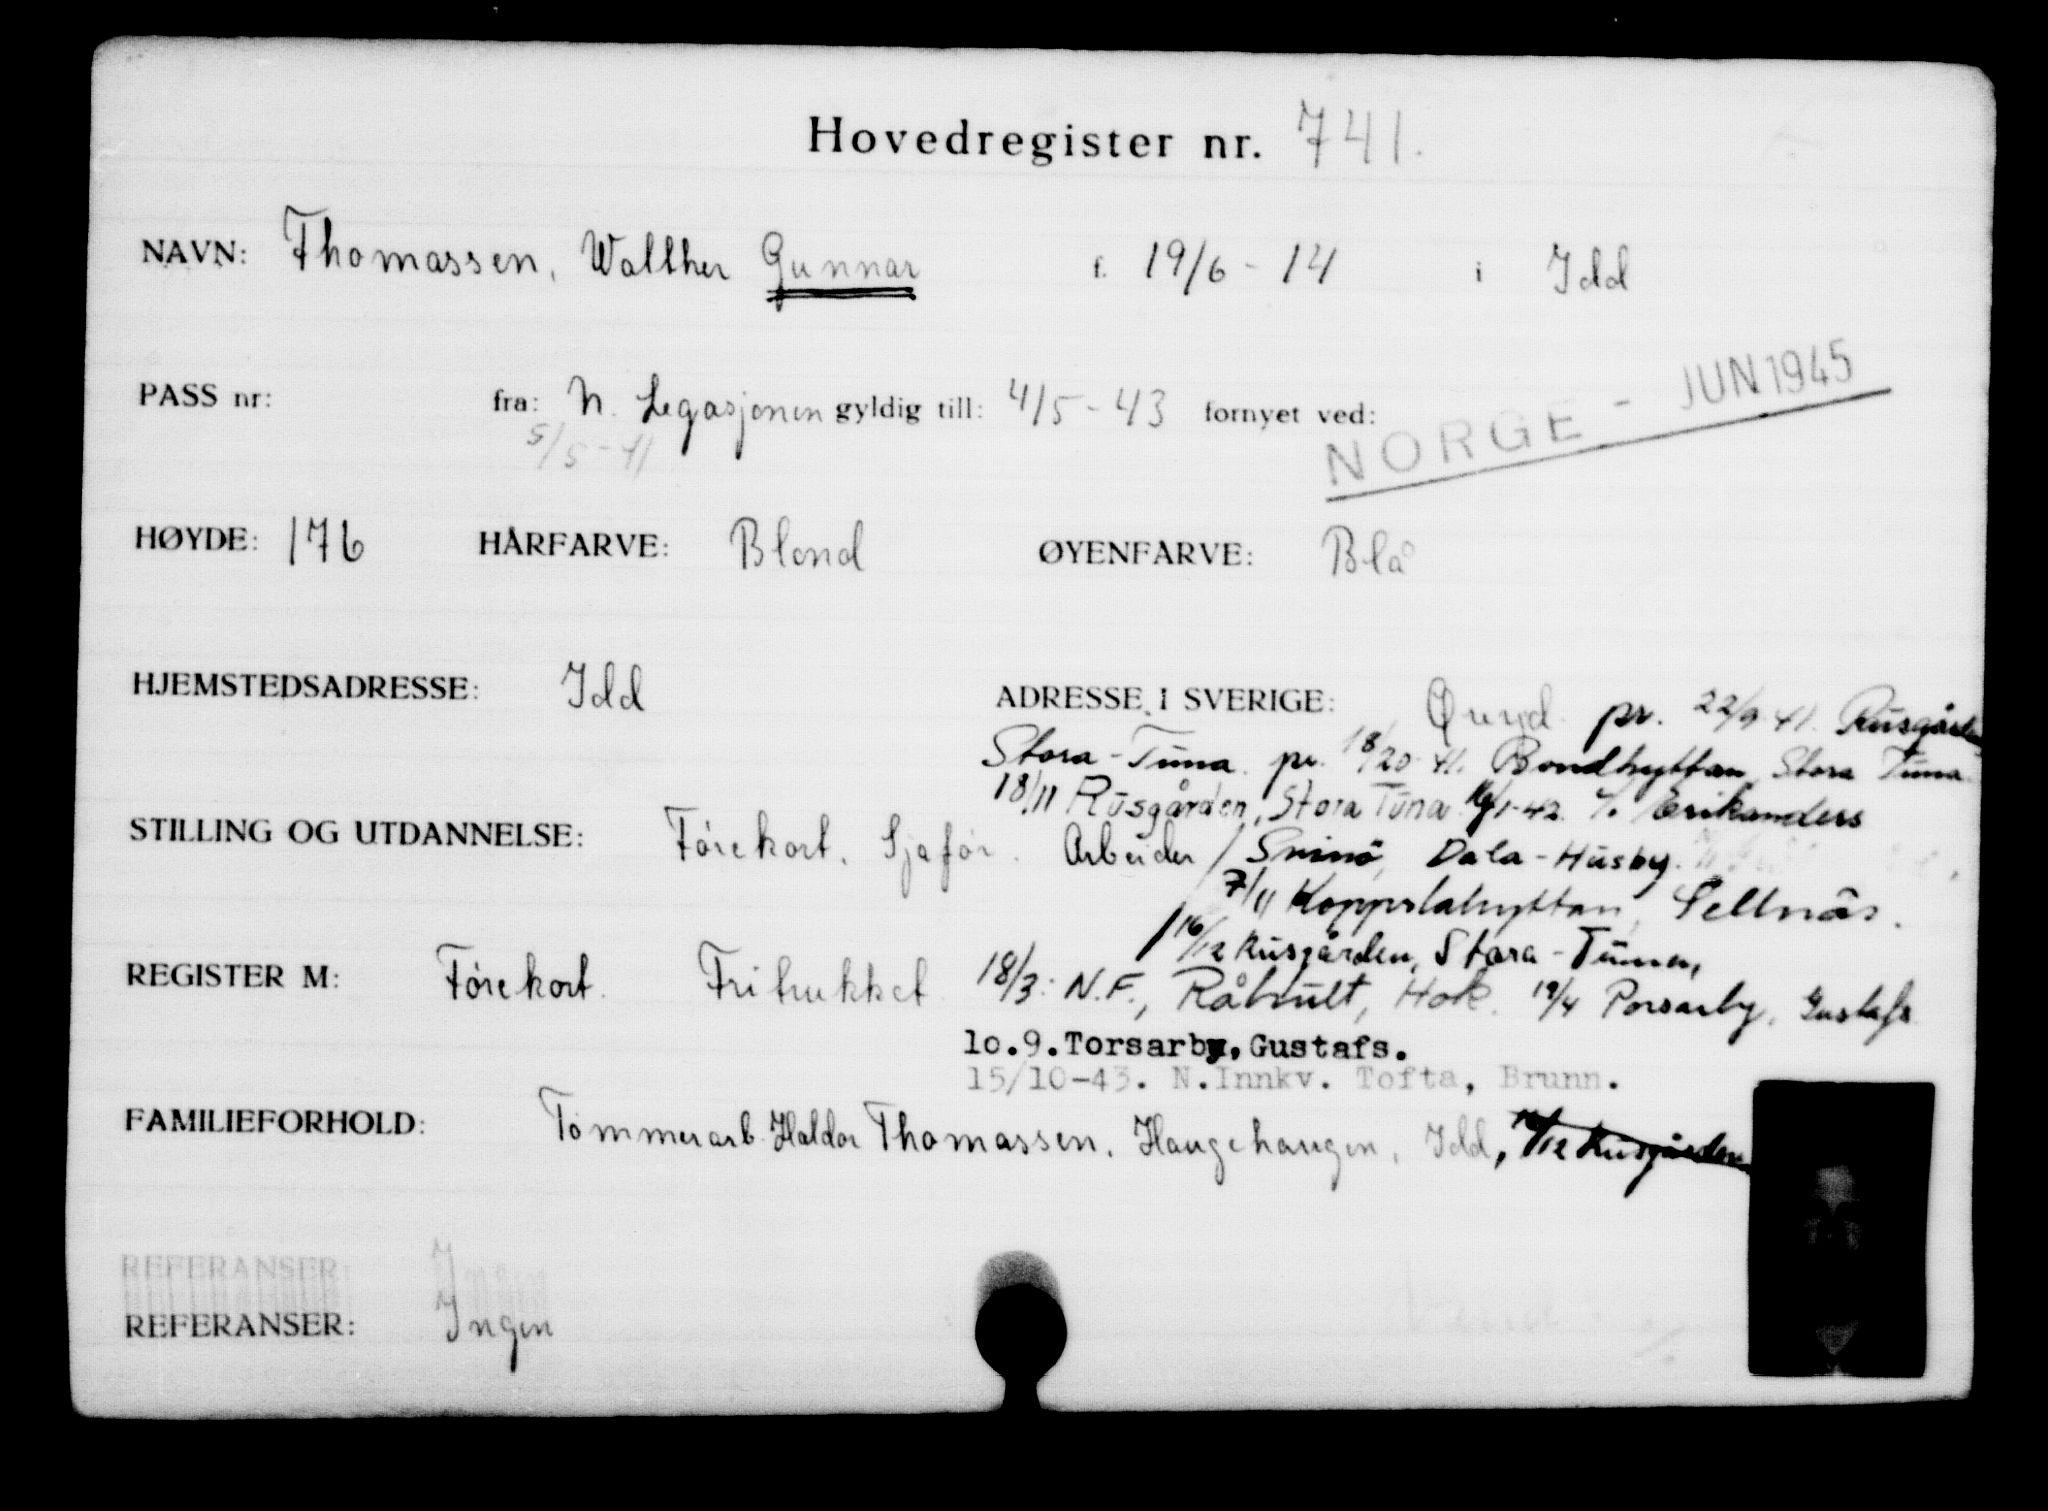 Hovedregister nr. 741.
NAVN: Thomassen, Walther Gunnar f. 19/6 - 14 i Idd
PASS nr: fra: N. Legasjonen gyldig till: 4/5 - 43 fornyet ved:
5/5 - 41
NORGE - JUN 1945
HØYDE: 176 HÅRFARVE: Blond ØYENFARVE: Blå
HJEMSTEDSADRESSE: Idd ADRESSE I SVERIGE: Øreryd pr. 22/9 41. Rusgården
Stora-Tuna. pr. 18/20 41. Bondhyttan, Stora Tuna
18/11 Rusgården, Stora Tuna 1-42 Erikanders
STILLING OG UTDANNELSE: Førekort. Sjafør. Arbeider / Svinö, Dala-Husby.
7/11 Kopperlahyttan, Sellnäs.
16/12 Rusgården, Stora-Tuna,
REGISTER M: Førekort. Fritrukket 18/3: N.F., Råhult, Hok. 19/4 Porsarby, Gustafs
10.9. Torsarby, Gustafs.
15/10-43. N.Innkv. Tofta, Brunn.
FAMILIEFORHOLD: Tømmerarb. Haldor Thomassen, Haugehaugen, Idd, 16/12 Rusgården
REFERANSER: Ingen
REFERANSER: Ingen